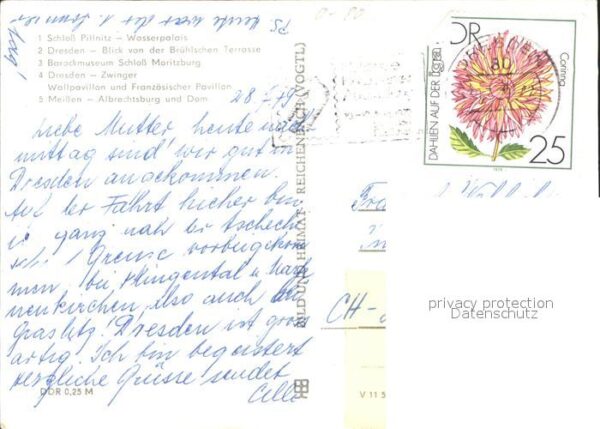 PS heute war der 1. Sommer
tag!
1 Schloß Pillnitz - Wasserpalais
2 Dresden - Blick von der Brühlschen Terrasse
3 Barockmuseum Schloß Moritzburg
4 Dresden - Zwinger
Wallpavillon und Französischer Pavillon
5 Meißen - Albrechtsburg und Dom
28.7.79
Liebe Mutter, heute nach
mittag sind wir gut in
Dresden angekommen.
Auf der Fahrt hieher bin
ich ganz nah der tscheche
sch. Grenze vorbeigekom
men, bei Klingental u. Mark
neukirchen, also auch an
Graslitz! Dresden ist gross
artig. Ich bin begeistert
herzliche Grüsse sendet
DDR 0,25 M
BILD UND HEIMAT REICHENBACH (VOGTL)
V 11 5
DDR
DAHLIEN AUF DER
Corinna
25
80
CH-
privacy protection
Datenschutz